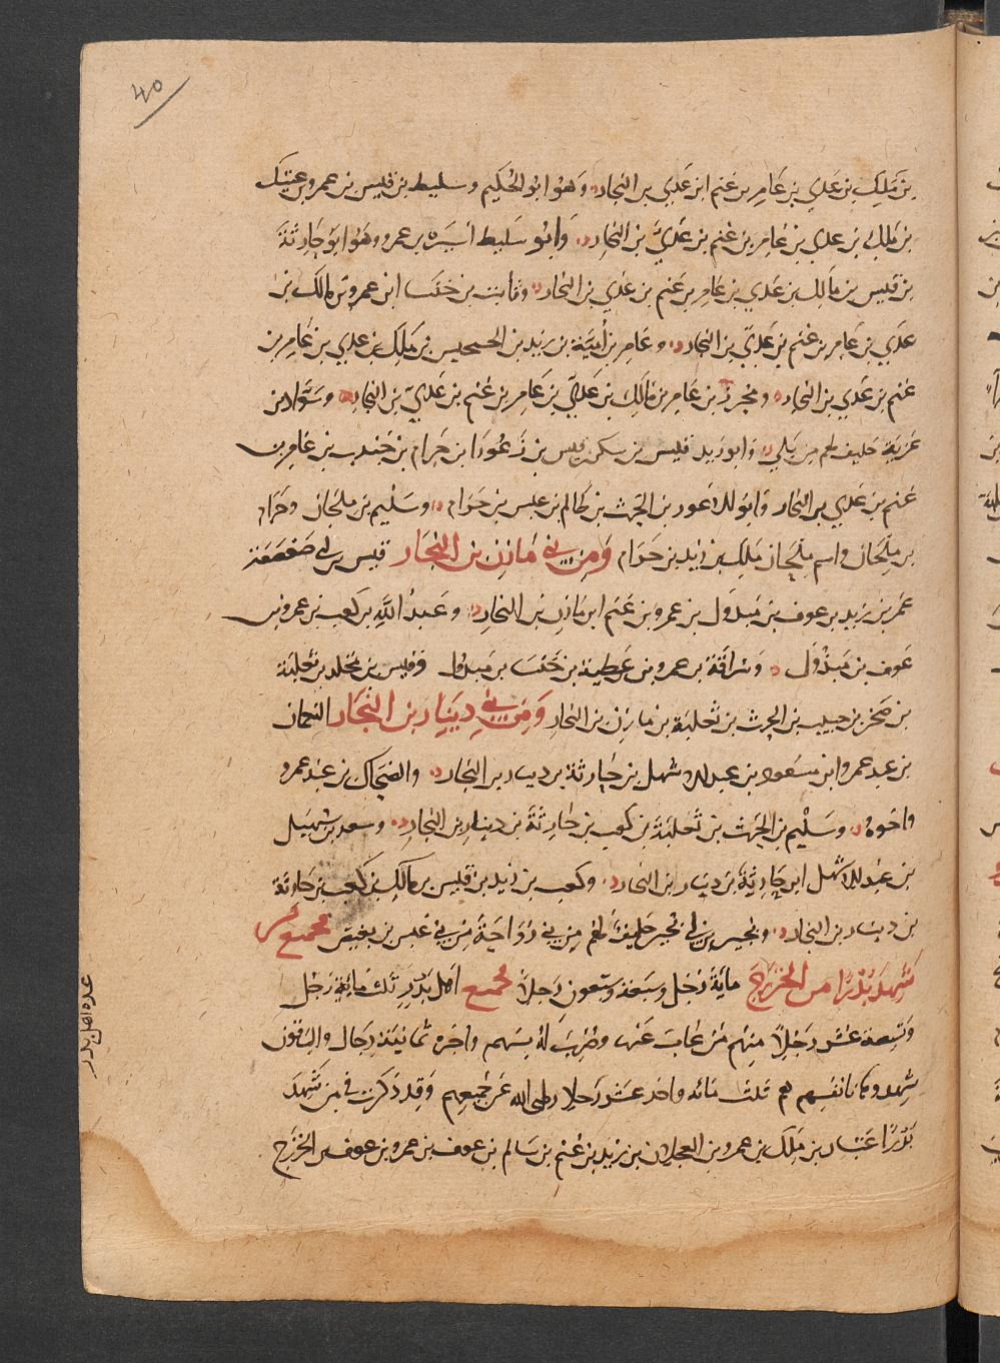 40
بن ملك بن عدي بن عامر بن غنم ابن عدي بن النجار وهو ابو الحكيم وسليط بن قيس بن عمرو بن عتيك
بن ملك بن عدي بن عامر بن غنم بن عدي بن النجار وابو سليط اسيره بن عمرو وهو ابو خارثة
بن قيس بن مالك بن عدي بن عامر بن غنم بن عدي بن النجار وثابت بن خنسا ابن عمرو بن مالك بن
عدي بن عامر بن غنم بن عدي بن النجار وعامر بن أمية بن زيد بن الحسحيس بن ملك بن عدي بن عامر بن
غنم بن عدي بن النجار ومحرز بن عامر بن مالك بن عدي بن عامر بن غنم بن عدي بن النجار وسواد بن
غزية حليف لهم من بلي وابو زيد قيس بن سكن بن قيس بن زعورا بن حرام بن جندب بن عامر بن
غنم بن عدي بن النجار وابو الاعور بن الحرث بن ظالم بن عبس بن حرام وسليم بن ملحان وحرام
بن ملحان واسم ملحان ملك بن زيد بن حرام ومن بني مازن بن النجار قيس بن ابي صعصعة
عمر بن زيد بن عوف بن مبذول بن عمرو بن غنم ابن مازن بن النجار وعبد الله بن كعب بن عمرو بن
عوف بن مبذول وسراقة بن عمرو بن عطية بن خنسا بن مبذول وقيس بن مخلد بن ثعلبة
بن صخر بن حبيب بن الحرث بن ثعلبة بن مازن بن النجار ومن بني دينار بن النجار النعمان
بن عبد عمرو ابن مسعود بن عبد الاشهل بن حارثة بن دينار بن النجار والضحاك بن عبد عمرو
واخوه وسليم بن الحرث بن ثعلبة بن كعب بن حارثة بن دينار بن النجار وسعد بن سهيل
بن عبد الاشهل ابن حارثة بن دينار ابن النجار وكعب بن زيد بن قيس بن مالك بن كعب بن حارثة
بن دينار بن النجار وبجير بن ابي بجير حليف لهم من بني رواحة من بني عبس بن بغيض فجميع من
شهد بدرًا من الخزرج مائة رجل وسبعة وتسعون رجلًا فجميع اهل بدر ثلث مائة رجل
وتسعة عشر رجلًا منهم من غاب عنها وضرب له بسهم واجره ثمانية رجال والباقون
شهدوها بانفسهم هم ثلث مائه واحد عشر رجلا رضي الله عن جميعهم وقد ذكرت في من شهد
بدرًا عتبان بن ملك بن عمرو بن العجلان بن زيد بن غنم بن سالم بن عوف بن عمرو بن عوف بن الخزرج
عدة اهل بدر